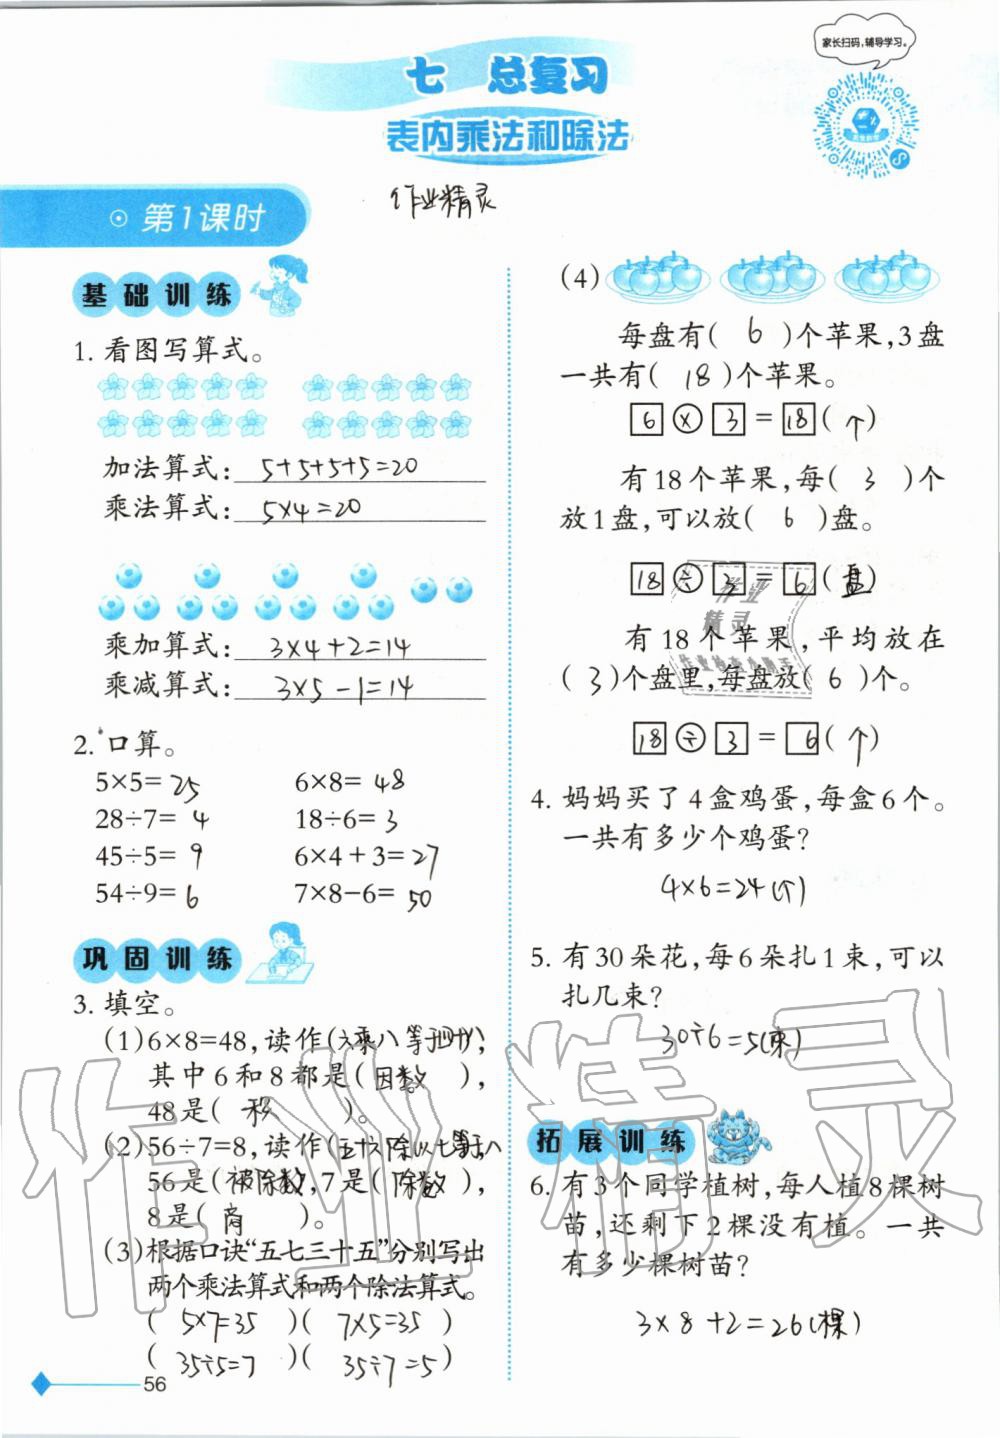 家长扫码,辅导学习。
七 总复习
表内乘法和除法
作业精灵
第1课时
基础训练
1. 看图写算式。
加法算式: 5+5+5+5=20
乘法算式: 5×4=20
乘加算式: 3×4+2=14
乘减算式: 3×5-1=14
2. 口算。
5×5=25 6×8=48
28÷7=4 18÷6=3
45÷5=9 6×4+3=27
54÷9=6 7×8-6=50
巩固训练
3. 填空。
(1)6×8=48,读作(六乘八等于四十八),
其中6和8都是(因数),
48是(积)。
(2)56÷7=8,读作(五十六除以七等于八),
56是(被除数),7是(除数),
8是(商)。
(3)根据口诀“五七三十五”分别写出
两个乘法算式和两个除法算式。
(5×7=35)(7×5=35)
(35÷5=7)(35÷7=5)
56
(4)
每盘有(6)个苹果,3盘
一共有(18)个苹果。
6×3=18(个)
有18个苹果,每(3)个
放1盘,可以放(6)盘。
18÷3=6(盘)
有18个苹果,平均放在
(3)个盘里,每盘放(6)个。
18÷3=6(个)
4. 妈妈买了4盒鸡蛋,每盒6个。
一共有多少个鸡蛋?
4×6=24(个)
5. 有30朵花,每6朵扎1束,可以
扎几束?
30÷6=5(束)
拓展训练
6. 有3个同学植树,每人植8棵树
苗,还剩下2棵没有植。一共
有多少棵树苗?
3×8+2=26(棵)
作业精灵
作业
精灵